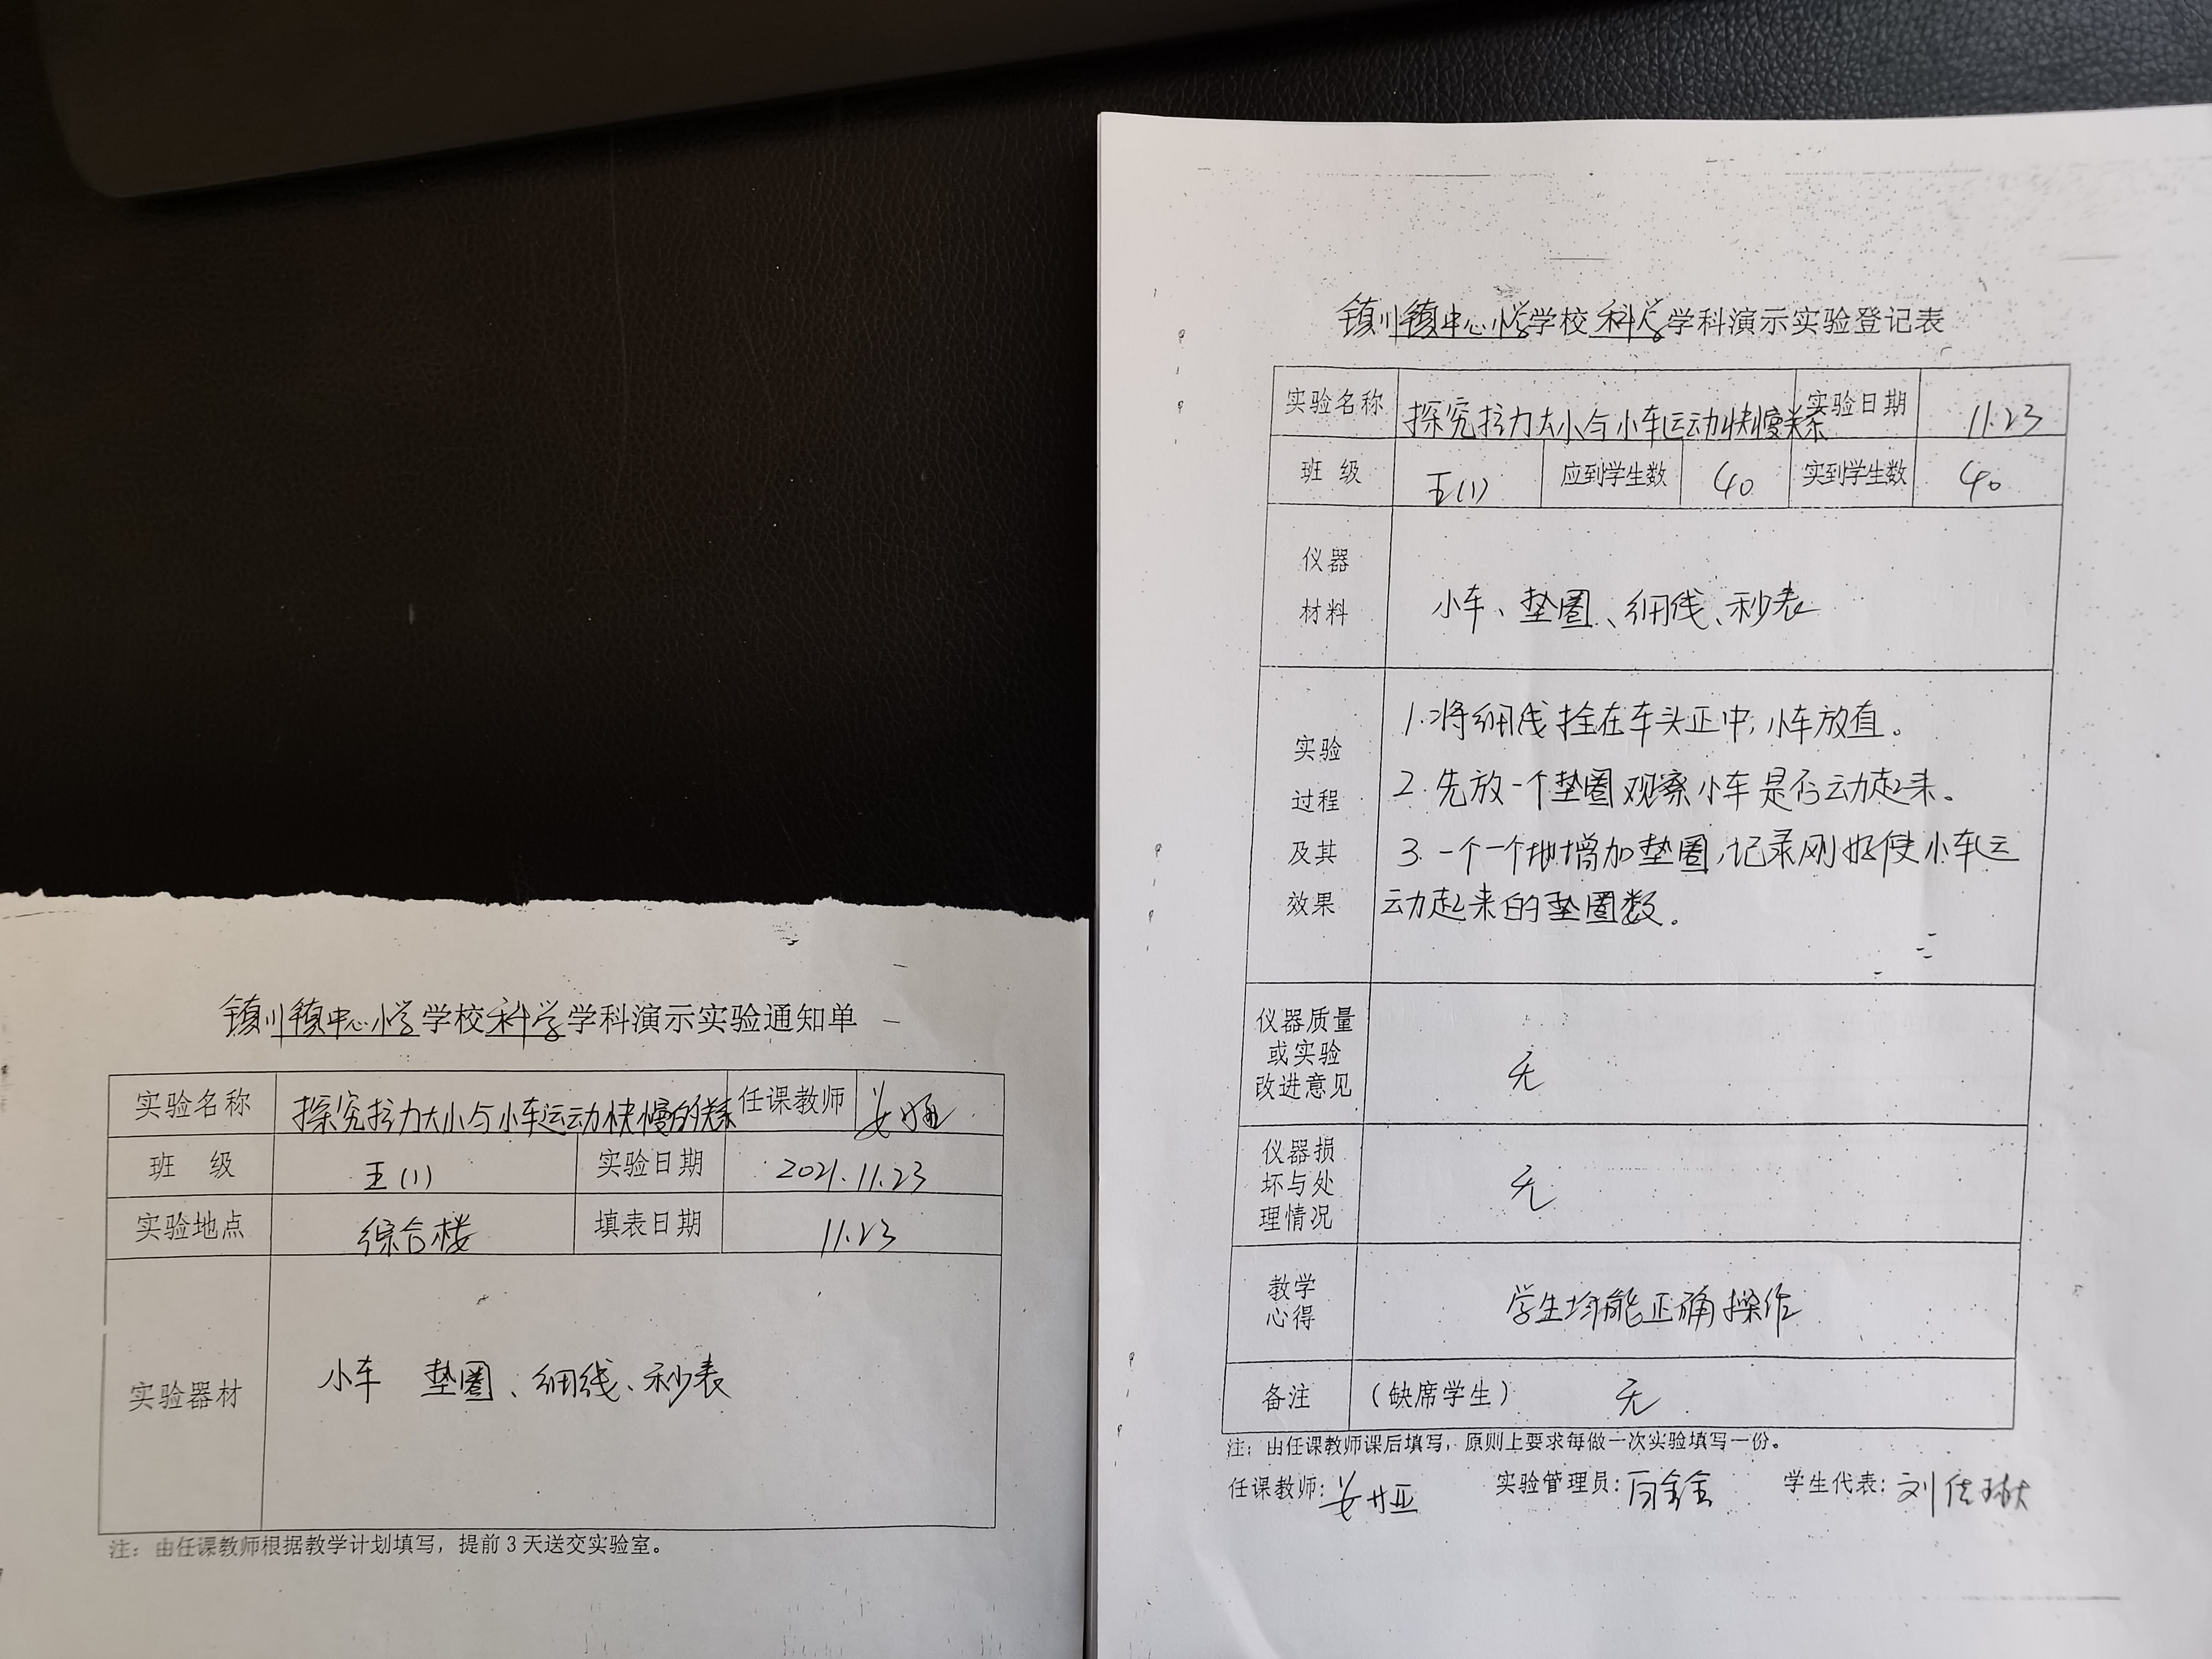 镇川镇中心小学学校科学学科演示实验通知单
实验名称 探究拉力大小与小车运动快慢的关系 任课教师
班 级 五(1) 实验日期 2021.11.23
实验地点 综合楼 填表日期 11.23
实验器材 小车 垫圈、细线、秒表
注：由任课教师根据教学计划填写，提前3天送交实验室。
镇川镇中心小学学校科学学科演示实验登记表
实验名称 探究拉力大小与小车运动快慢关系 实验日期 11.23
班 级 五(1) 应到学生数 40 实到学生数 40
仪器
材料
小车、垫圈、细线、秒表
实验
过程
及其
效果
1.将细线拴在车头正中,小车放直。
2.先放一个垫圈观察小车是否运动起来。
3.一个一个地增加垫圈,记录刚好使小车运
动起来的垫圈数。
仪器质量
或实验
改进意见
无
仪器损
坏与处
理情况
无
教学
心得
学生均能正确操作
备注 (缺席学生) 无
注：由任课教师课后填写，原则上要求每做一次实验填写一份。
任课教师: 实验管理员: 学生代表: